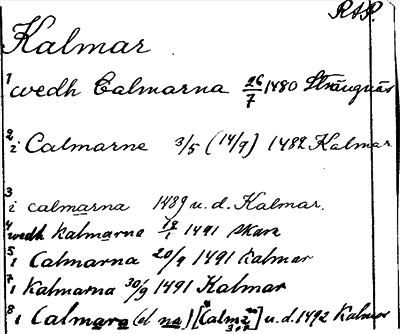 RAP.
Kalmar
1 wedh Calmarna 26/7 1480 Strängnäs
2 i Calmarne 3/5 (14/9) 1482 Kalmar
3 i calmarna 1489 u.d. Kalmar.
4 wedh kalmarne 1491 Skara
5 i Calmarna 20/9 1491 Kalmar
7 i Kalmarna 30/9 1491 Kalmar
8 i Calmara (el na) u.d. 1492 Kalmar